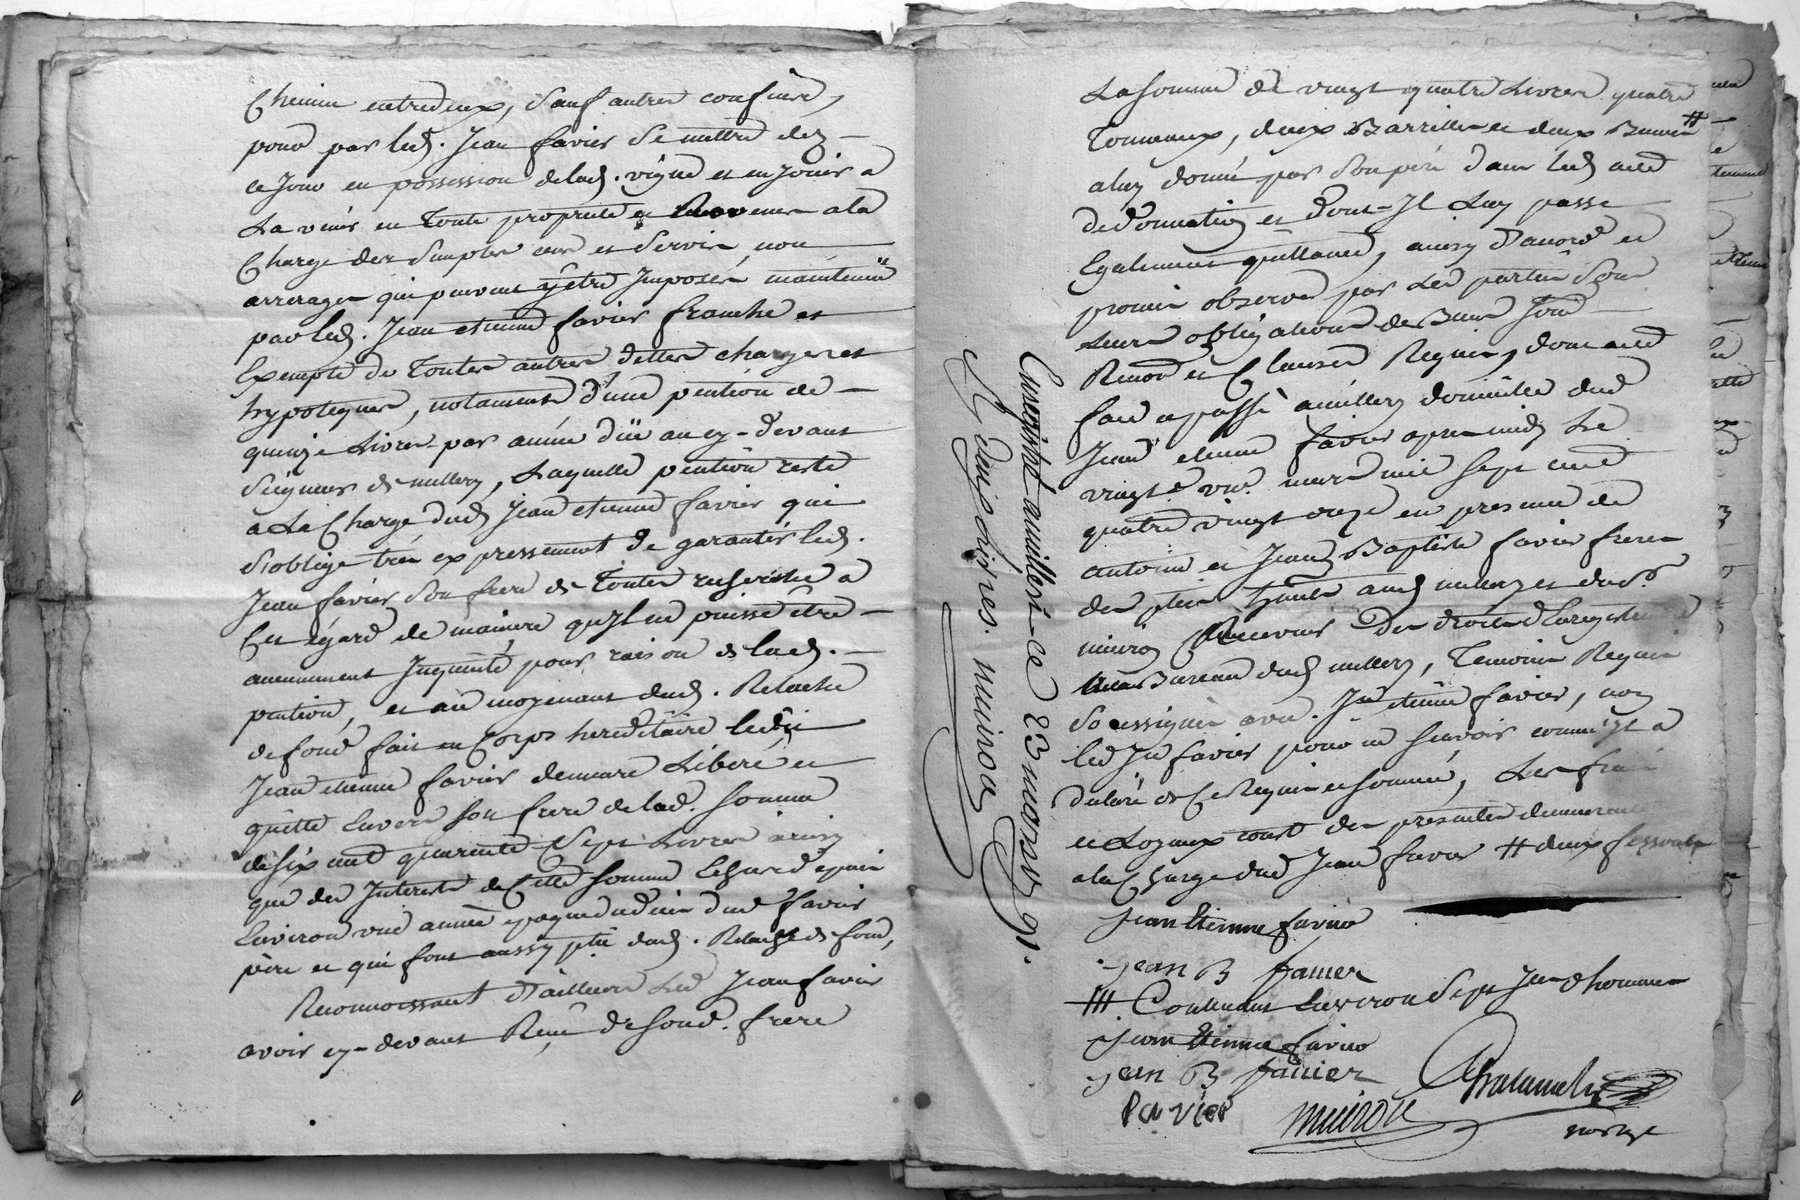 Chemin entredeux, sauf autres confins,
pour par led. Jean favier se mettre dez
ce jour en possession delad. vigne et en jouir a
La venir en toute propriété et Revenus ala
Charge des simples cens et servis, non
arreragés qui peuvent y être Imposés, maintenüe
par led. Jean etienne favier franche et
Exempte de toutes autres dettes charges et
hypoteques, notamment d'une pention de
quinze Livres par année düe au cy-devant
Seigneur de millery, Laquelle pention reste
a La Charge dud. Jean etienne favier qui
s'oblige très expressement de garantir led.
Jean favier son frere de toutes recherche a
Cet égard de maniere qu'Il ne puisse être
aucunement Inquiété pour raison de lad.
pention, et au moyenant dud. Relache
de fond fait en Corps hereditaire ledit
Jean etienne favier demeure Libéré et
quitte Envers son frere de lad. somme
de six cent quarente Sept Livres ainsy
que des Interets de Cette somme
Environ une année epoque du deces dud. favier
père et qui font aussy partie dud. Relache de fond,
Reconnoissant d'ailleurs Led Jean favier
avoir cy-devant Reçu de sond. frere
La somme de vingt quatre Livres quatre
Tonneaux, deux Barrilles et deux Bennes #
aluy donné par son père dans led acte
de donnation et dont Il Luy passe
Egalement quittance, ainsy d'accord et
promis observer par Les parties sous
Leurs obligations de Biens soumis
Renon et Clauses Requises, dont acte
fait et passé a millery domicile dud
Jean etienne favier apres midy Le
vingt un mars mil sept cent
quatre vingt onze en presence de
antoine et Jean Baptiste favier freres
aud millery et du Sr
miiron Receveur des droits d'Enregistrement
au Bureau dud millery, Temoins Requis
soussignés avec Jean etienne favier, non
led Jn favier pour ne savoir comme Il a
declaré de Ce Requis et sommé, Les frais
et Loyaux cout des presentes demeurant
a la Charge dud Jean favier # deux
Jean Etienne favier
Jean B favier
Contenant Environ Sept Jes d'hommes
Jean Etienne favier
Jean B favier
favier miiron
notre
Enregistré a millery ce 23 mars 91.
R. miiron